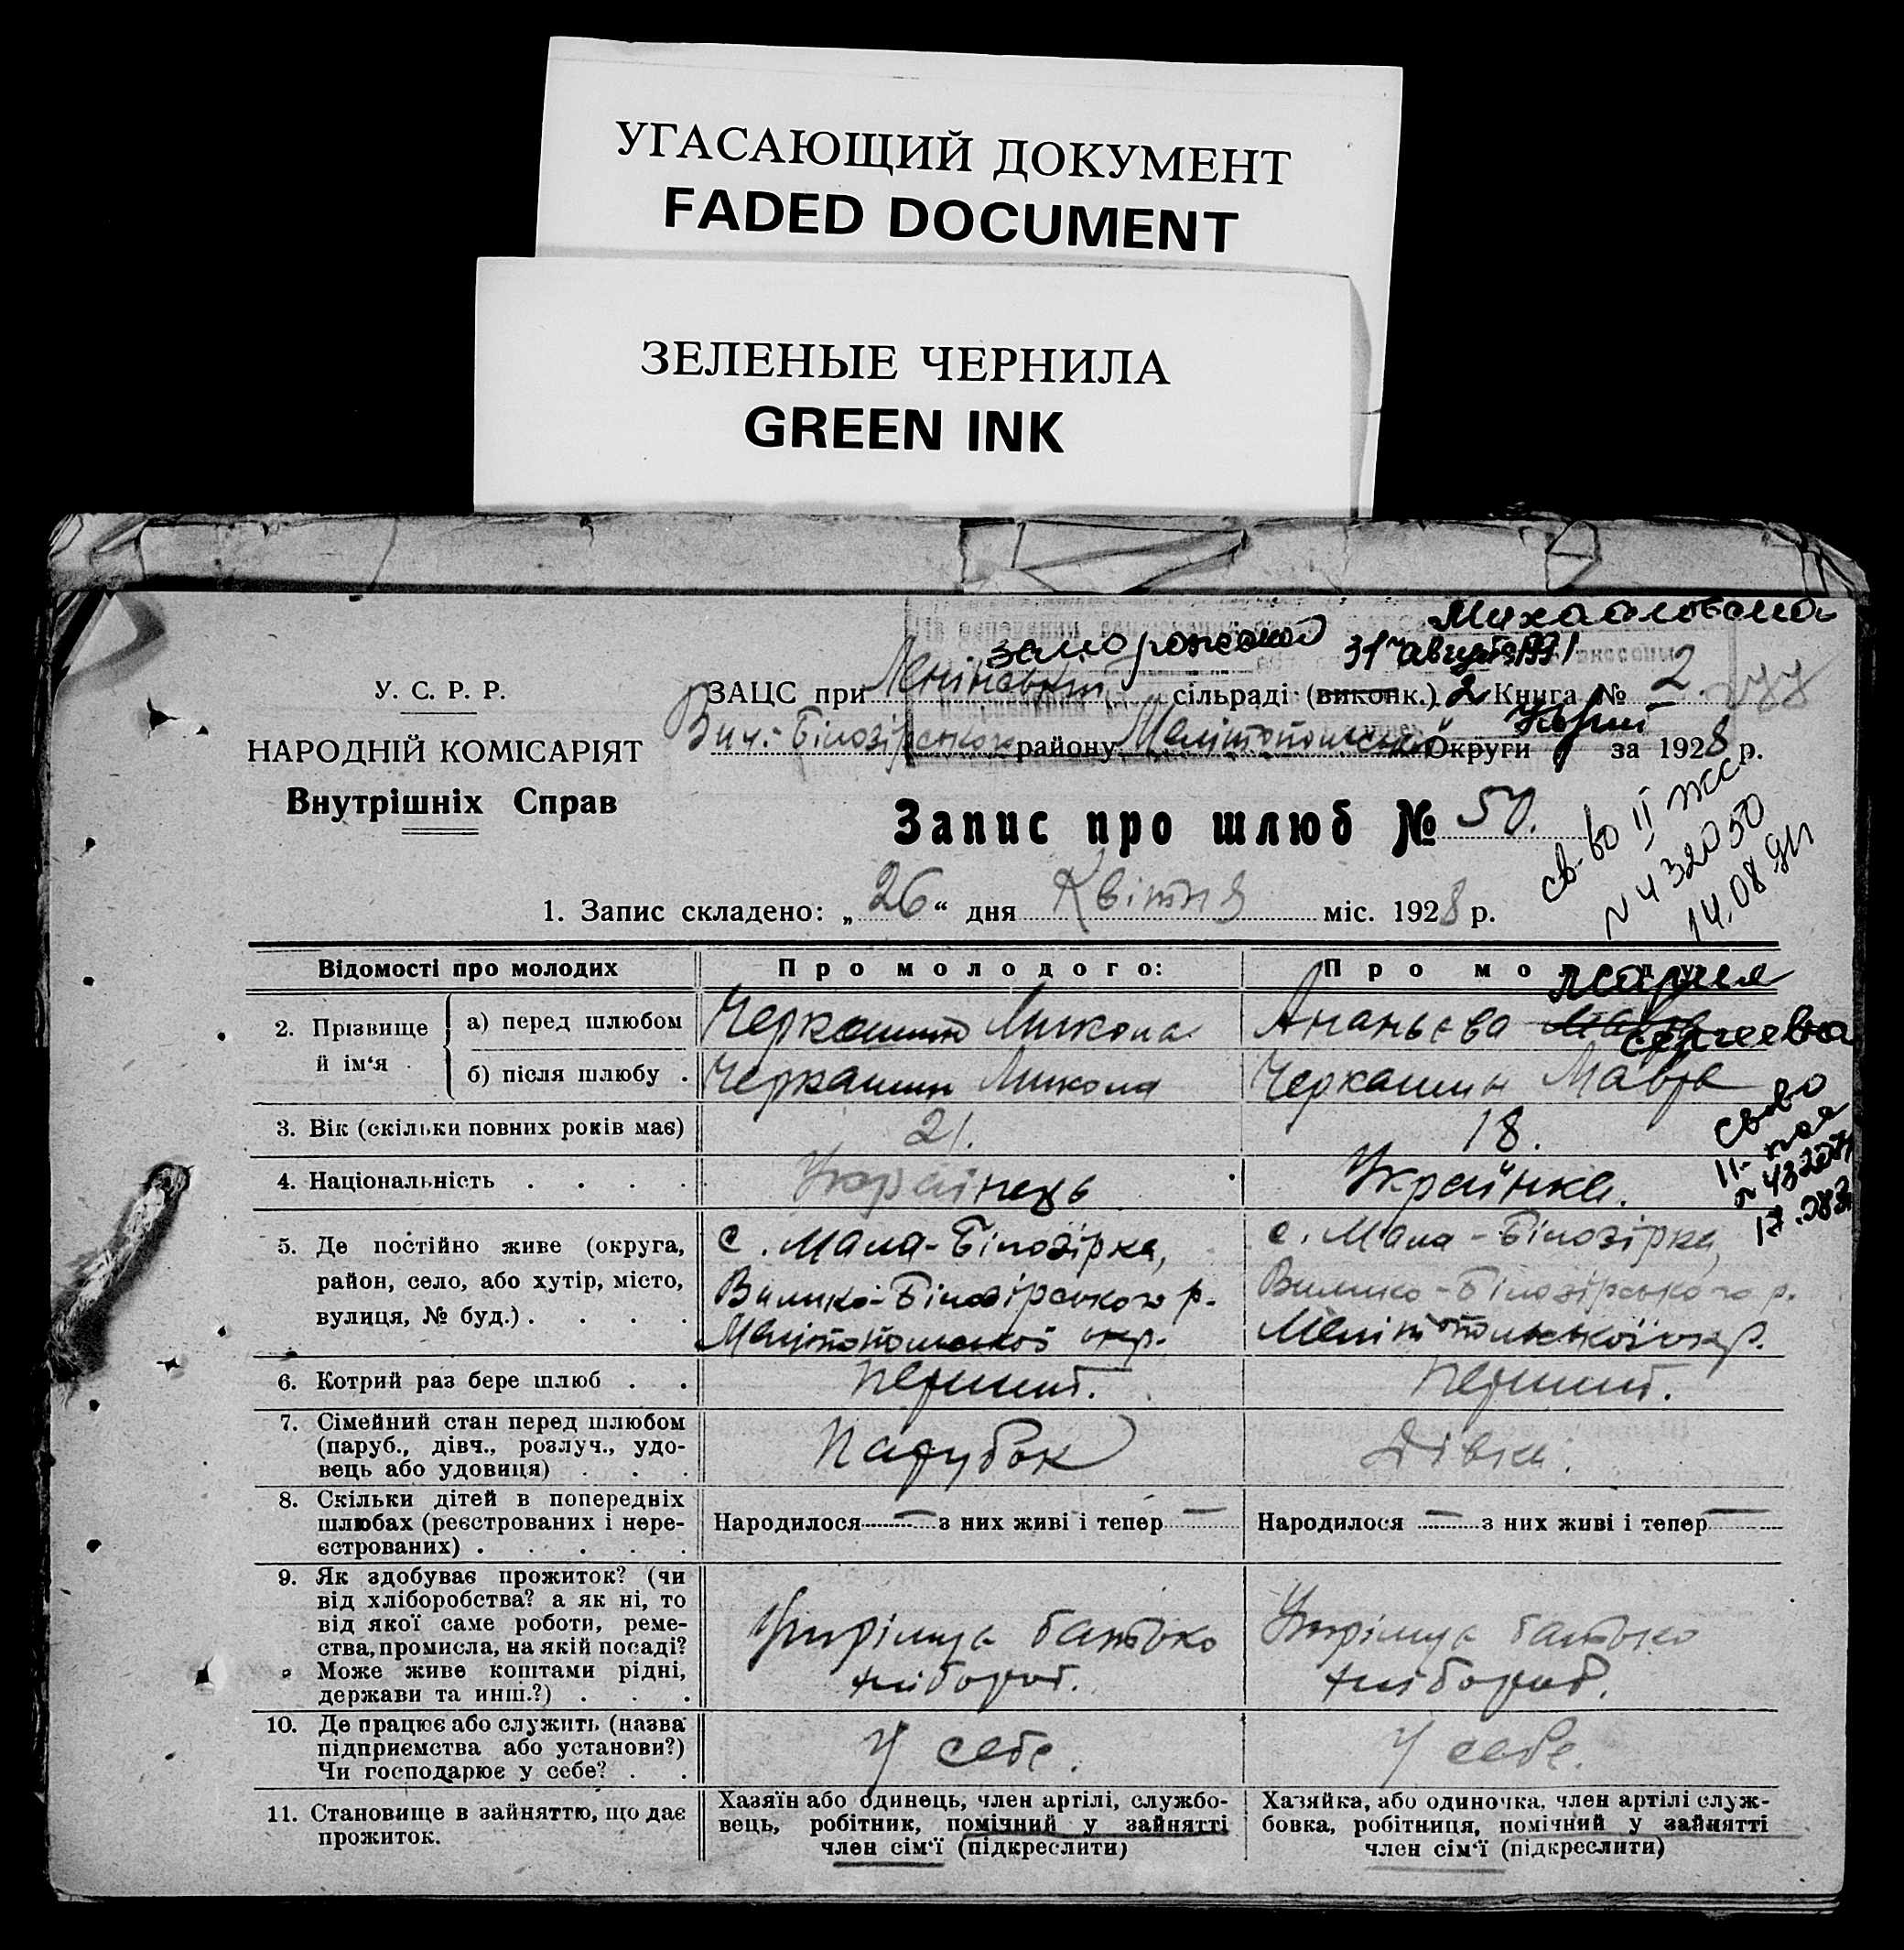 УГАСАЮЩИЙ ДОКУМЕНТ
FADED DOCUMENT
ЗЕЛЕНЫЕ ЧЕРНИЛА
GREEN INK
У. С. Р. Р.
НАРОДНІЙ КОМІСАРІЯТ
Внутрішніх Справ
ЗАЦС при сільраді (виконк.) 2 Книга № 2.
Вич.-Білозірського району Мелітопольської Округи за 1928 р.
Запис про шлюб № 50.
св-во II жс
N 432050
14.08 91
1. Запис складено: „26“ дня Квітня міс. 1928 р.
Відомості про молодих
Про молодого:
Про молоду:
Мария
Сергеевна
2. Прізвище й ім‘я
а) перед шлюбом
Черкашин Микола
Ананьєва
б) після шлюбу .
Черкашин Микола
Черкашин Мавра
3. Вік (скільки повних років має)
21.
18.
4. Національність . . . .
Українець
Українка.
5. Де постійно живе (округа,
район, село, або хутір, місто,
вулиця, № буд.) . . . .
с. Мала-Білозірка,
Велико-Білозірського р.
Мелітопольської окр.
с. Мала-Білозірка,
Велико-Білозірського р.
Мелітопольської окр.
6. Котрий раз бере шлюб . .
перший.
перший.
7. Сімейний стан перед шлюбом
(паруб., дівч., розлуч., удо-
вець або удовиця) . . .
Парубок
Дівка.
8. Скільки дітей в попередніх
шлюбах (реєстрованих і нере-
єстрованих) . . . . .
Народилося — з них живі і тепер —
Народилося — з них живі і тепер —
9. Як здобуває прожиток? (чи
від хліборобства? а як ні, то
від якої саме роботи, реме-
ства, промисла, на якій посаді?
Може живе коштами рідні,
держави та инш.?) . . .
Утрімує батько
хлібороб.
Утрімує батько
хлібороб.
10. Де працює або служить (назва
підприємства або установи?)
Чи господарює у себе? . .
У себе.
У себе.
11. Становище в зайняттю, що дає
прожиток.
Хазяїн або одинець, член артілі, службо-
вець, робітник, помічний у зайнятті
член сім‘ї (підкреслити)
Хазяйка, або одиночка, член артілі служ-
бовка, робітниця, помічний у зайнятті
член сім‘ї (підкреслити)